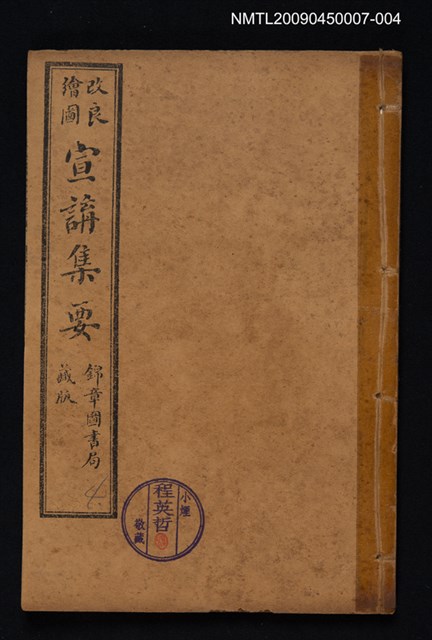 NMTL20090450007-004
改良
繪圖
宣講集要
錦章圖書局
藏版
4
小埕
程英哲
敬藏